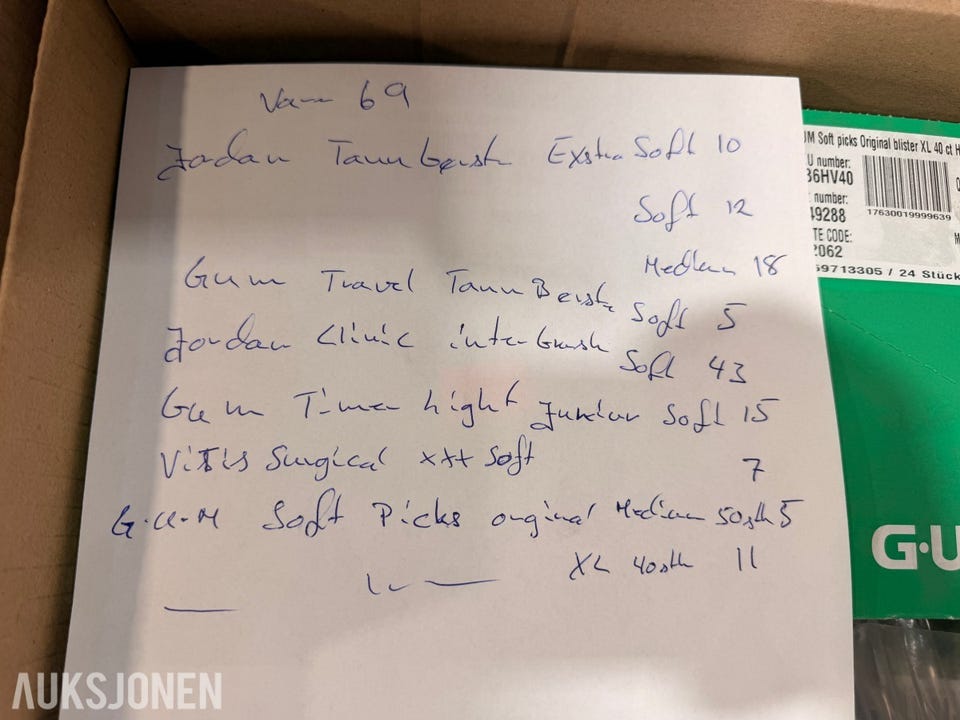 69
Jordan Tannbørste Exstra Soft 10
Soft 12
Medium 18
Gum Travel TannBørste Soft 5
Jordan Clinic interbrush Soft 43
Gum Timer Light Junior Soft 15
Vitis Surgical xxx Soft 7
G.U.M Soft Picks original Medium 50stk 5
XL 40stk 11
UM Soft picks Original blister XL 40 ct H
U number:
36HV40
number:
49288
17630019999639
TE CODE:
2062
59713305 / 24 Stück
G·U
AUKSJONEN